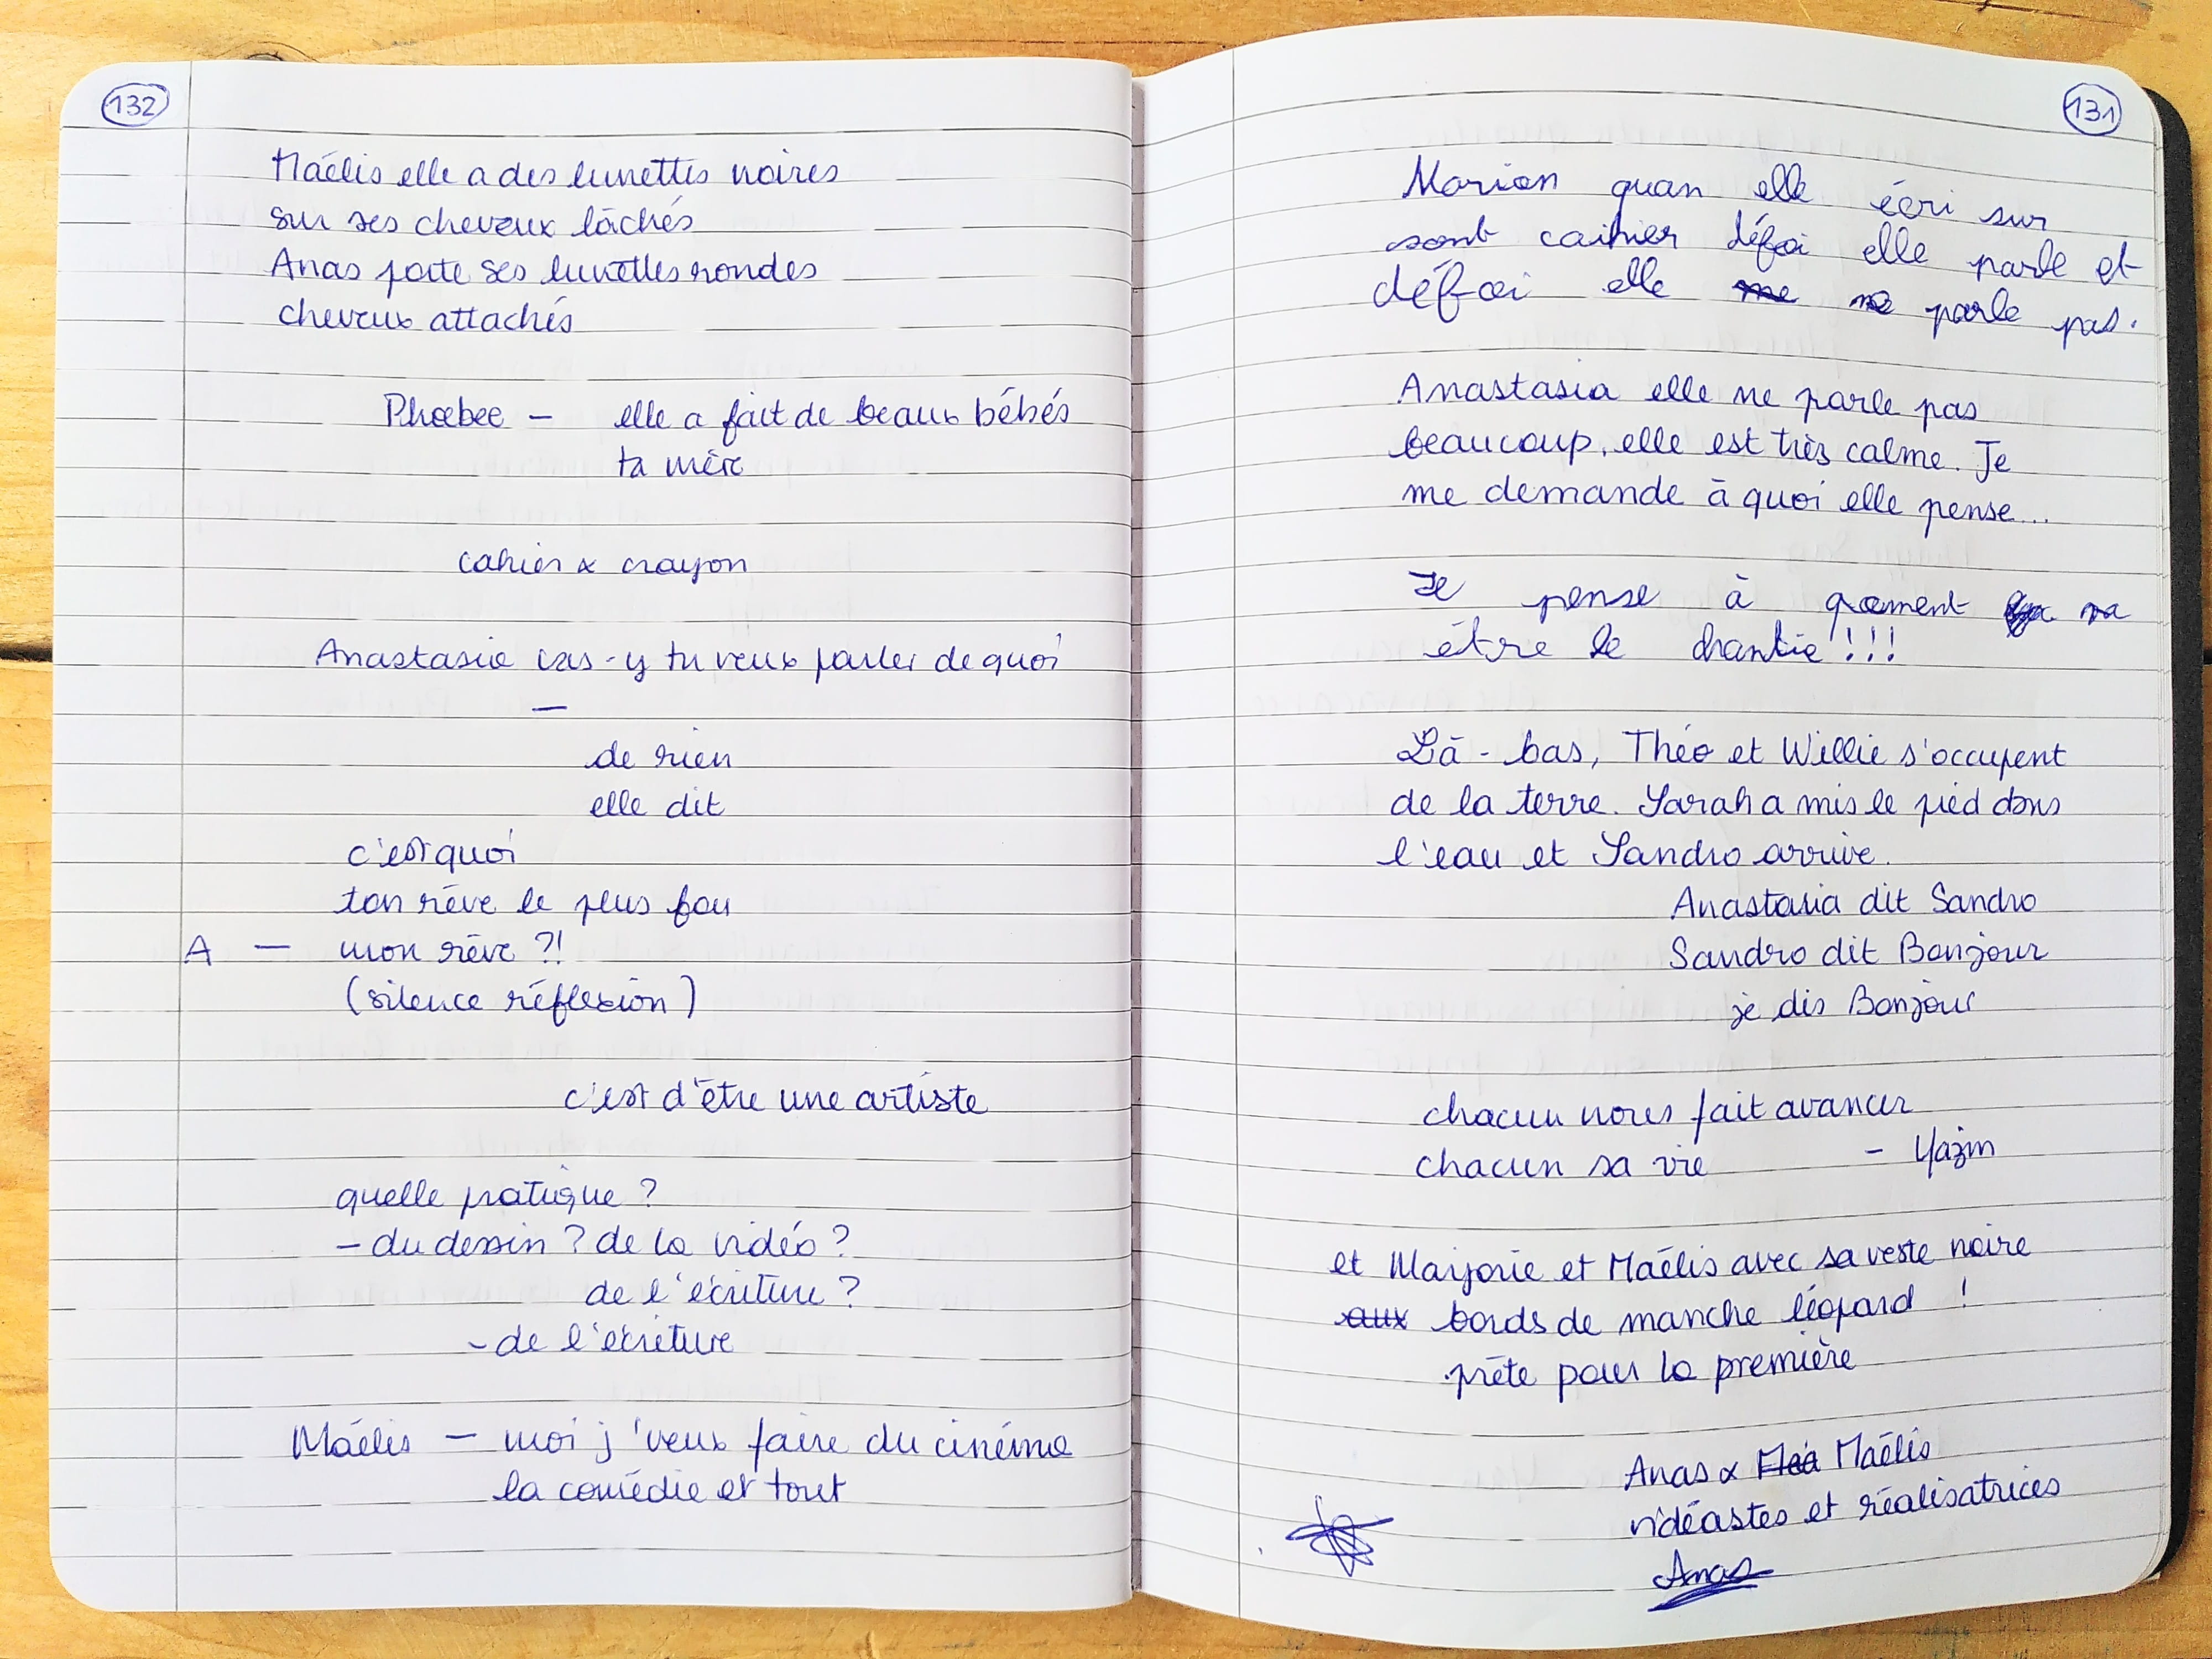 132
Maélis elle a des lunettes noires
sur ses cheveux lâchés
Anas porte ses lunettes rondes
cheveux attachés
Phoebee — elle a fait de beaux bébés
ta mère
cahier & crayon
Anastasia vas-y tu veux parler de quoi
—
de rien
elle dit
c'est quoi
ton rêve le plus fou
A — mon rêve ?!
(silence réflexion)
c'est d'être une artiste
quelle pratique ?
- du dessin ? de la vidéo ?
de l'écriture ?
- de l'écriture
Maélis — moi j'veux faire du cinéma
la comédie et tout
131
Marion quan elle écri sur
sont caihier défoi elle parle et
défoi elle me ne parle pas.
Anastasia elle ne parle pas
beaucoup, elle est très calme. Je
me demande à quoi elle pense...
Je pense à qoement va
être le chantie !!!
Là-bas, Théo et Willie s'occupent
de la terre. Sarah a mis le pied dans
l'eau et Sandro arrive.
Anastasia dit Sandro
Sandro dit Bonjour
je dis Bonjour
chacun nous fait avancer
chacun sa vie - Yazin
et Marjorie et Maélis avec sa veste noire
aux bords de manche léopard !
prête pour la première
Anas & Maélis
vidéastes et réalisatrices
Anas